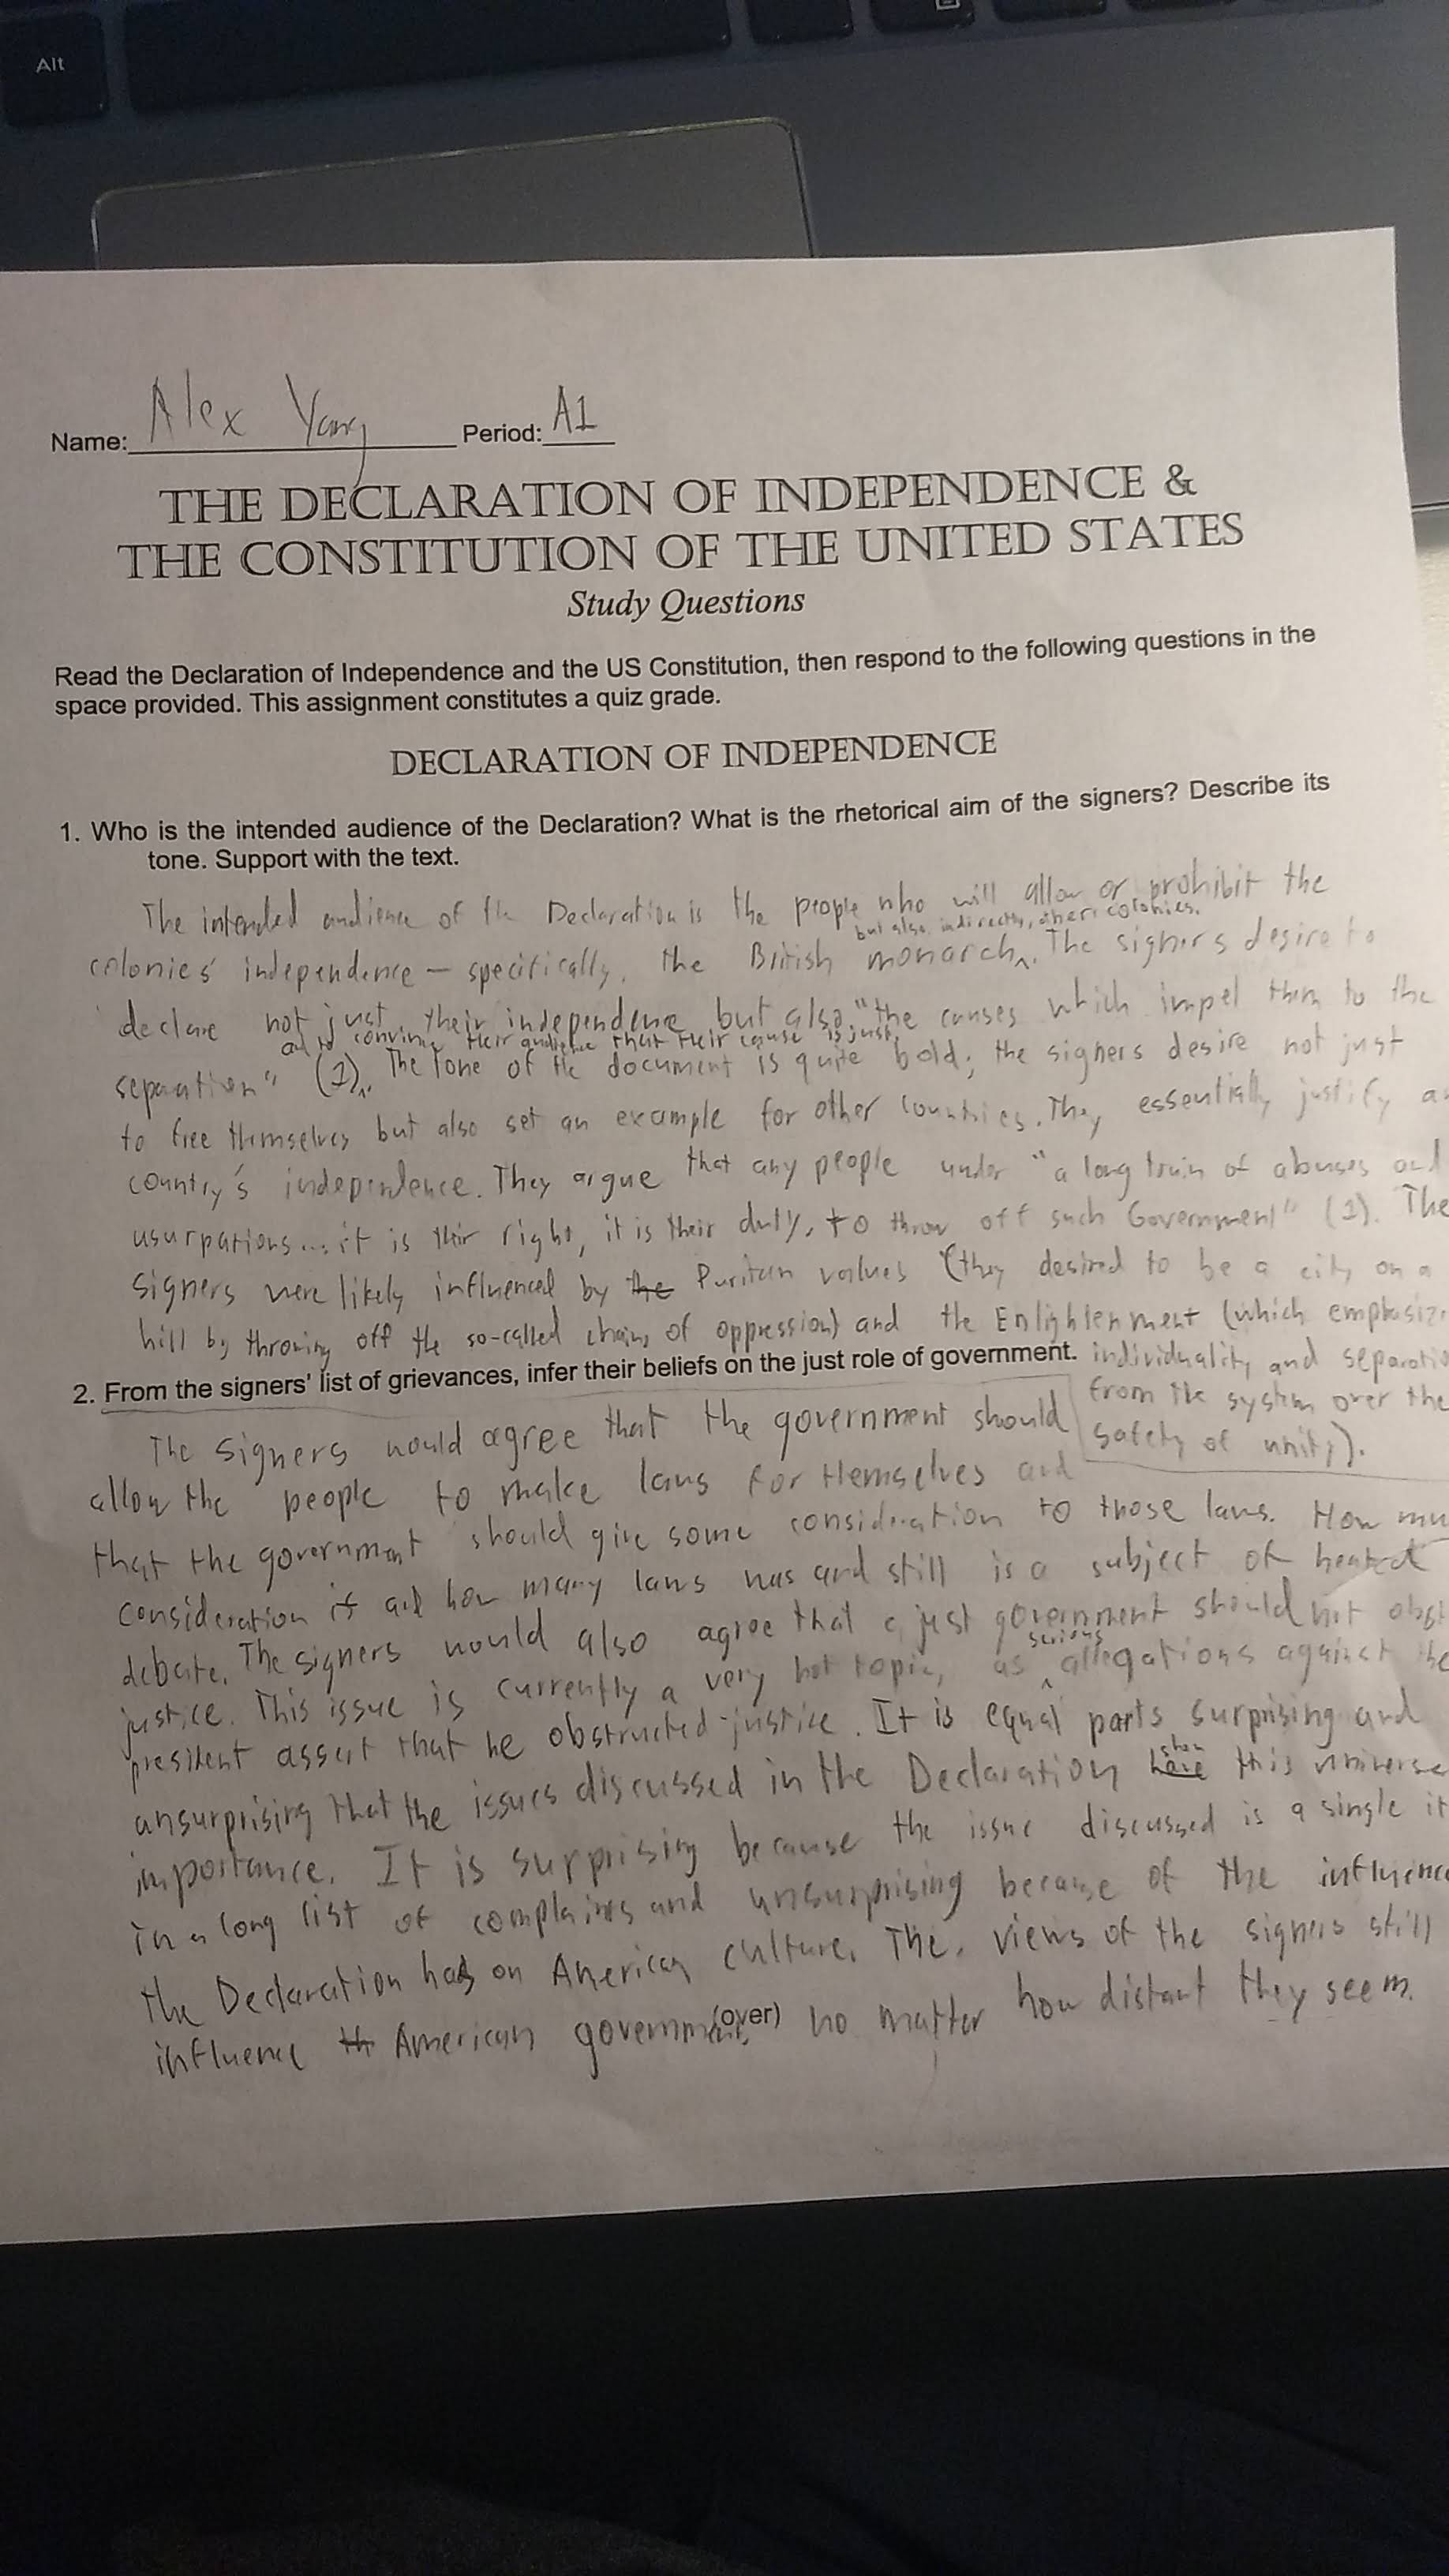 Alt
Name: Alex Yang Period: A1
THE DECLARATION OF INDEPENDENCE &
THE CONSTITUTION OF THE UNITED STATES
Study Questions
Read the Declaration of Independence and the US Constitution, then respond to the following questions in the
space provided. This assignment constitutes a quiz grade.
DECLARATION OF INDEPENDENCE
1. Who is the intended audience of the Declaration? What is the rhetorical aim of the signers? Describe its
tone. Support with the text.
The intended audience of the Declaration is the people who will allow or prohibit the
but also, indirectly, other colonies.
colonies' independence – specifically, the British monarch. The signers desire to
declare not just their independence but also "the causes which impel them to the
and to convince their audience that their cause is just.
separation" (1). The tone of the document is quite bold; the signers desire not just
to free themselves but also set an example for other countries. They essentially justify a
country's independence. They argue that any people under "a long train of abuses and
usurpations... it is their right, it is their duty, to throw off such Government" (1). The
signers were likely influenced by the Puritan values (they desired to be a city on a
hill by throwing off the so-called chains of oppression) and the Enlightenment (which emphasize
individuality and separatio
from the system over the
safety of unity).
2. From the signers' list of grievances, infer their beliefs on the just role of government.
The signers would agree that the government should
allow the people to make laws for themselves and
that the government should give some consideration to those laws. How mu
consideration is and how many laws was and still is a subject of heated
debate. The signers would also agree that a just government should not obst
serious
justice. This issue is currently a very hot topic, as allegations against the
president assert that he obstructed justice. It is equal parts surprising and
shown
unsurprising that the issues discussed in the Declaration have this universa
importance. It is surprising because the issue discussed is a single it
in a long list of complaints and unsurprising because of the influence
the Declaration has on American culture. The views of the signers still
influence th American government, no matter how distant they seem.
(over)